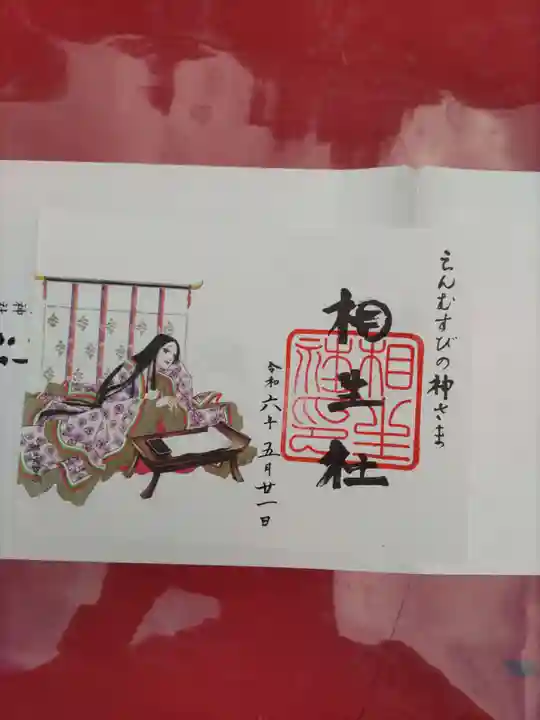 えんむすびの神さま
相生社
相生
社印
令和六年五月廿一日
神社